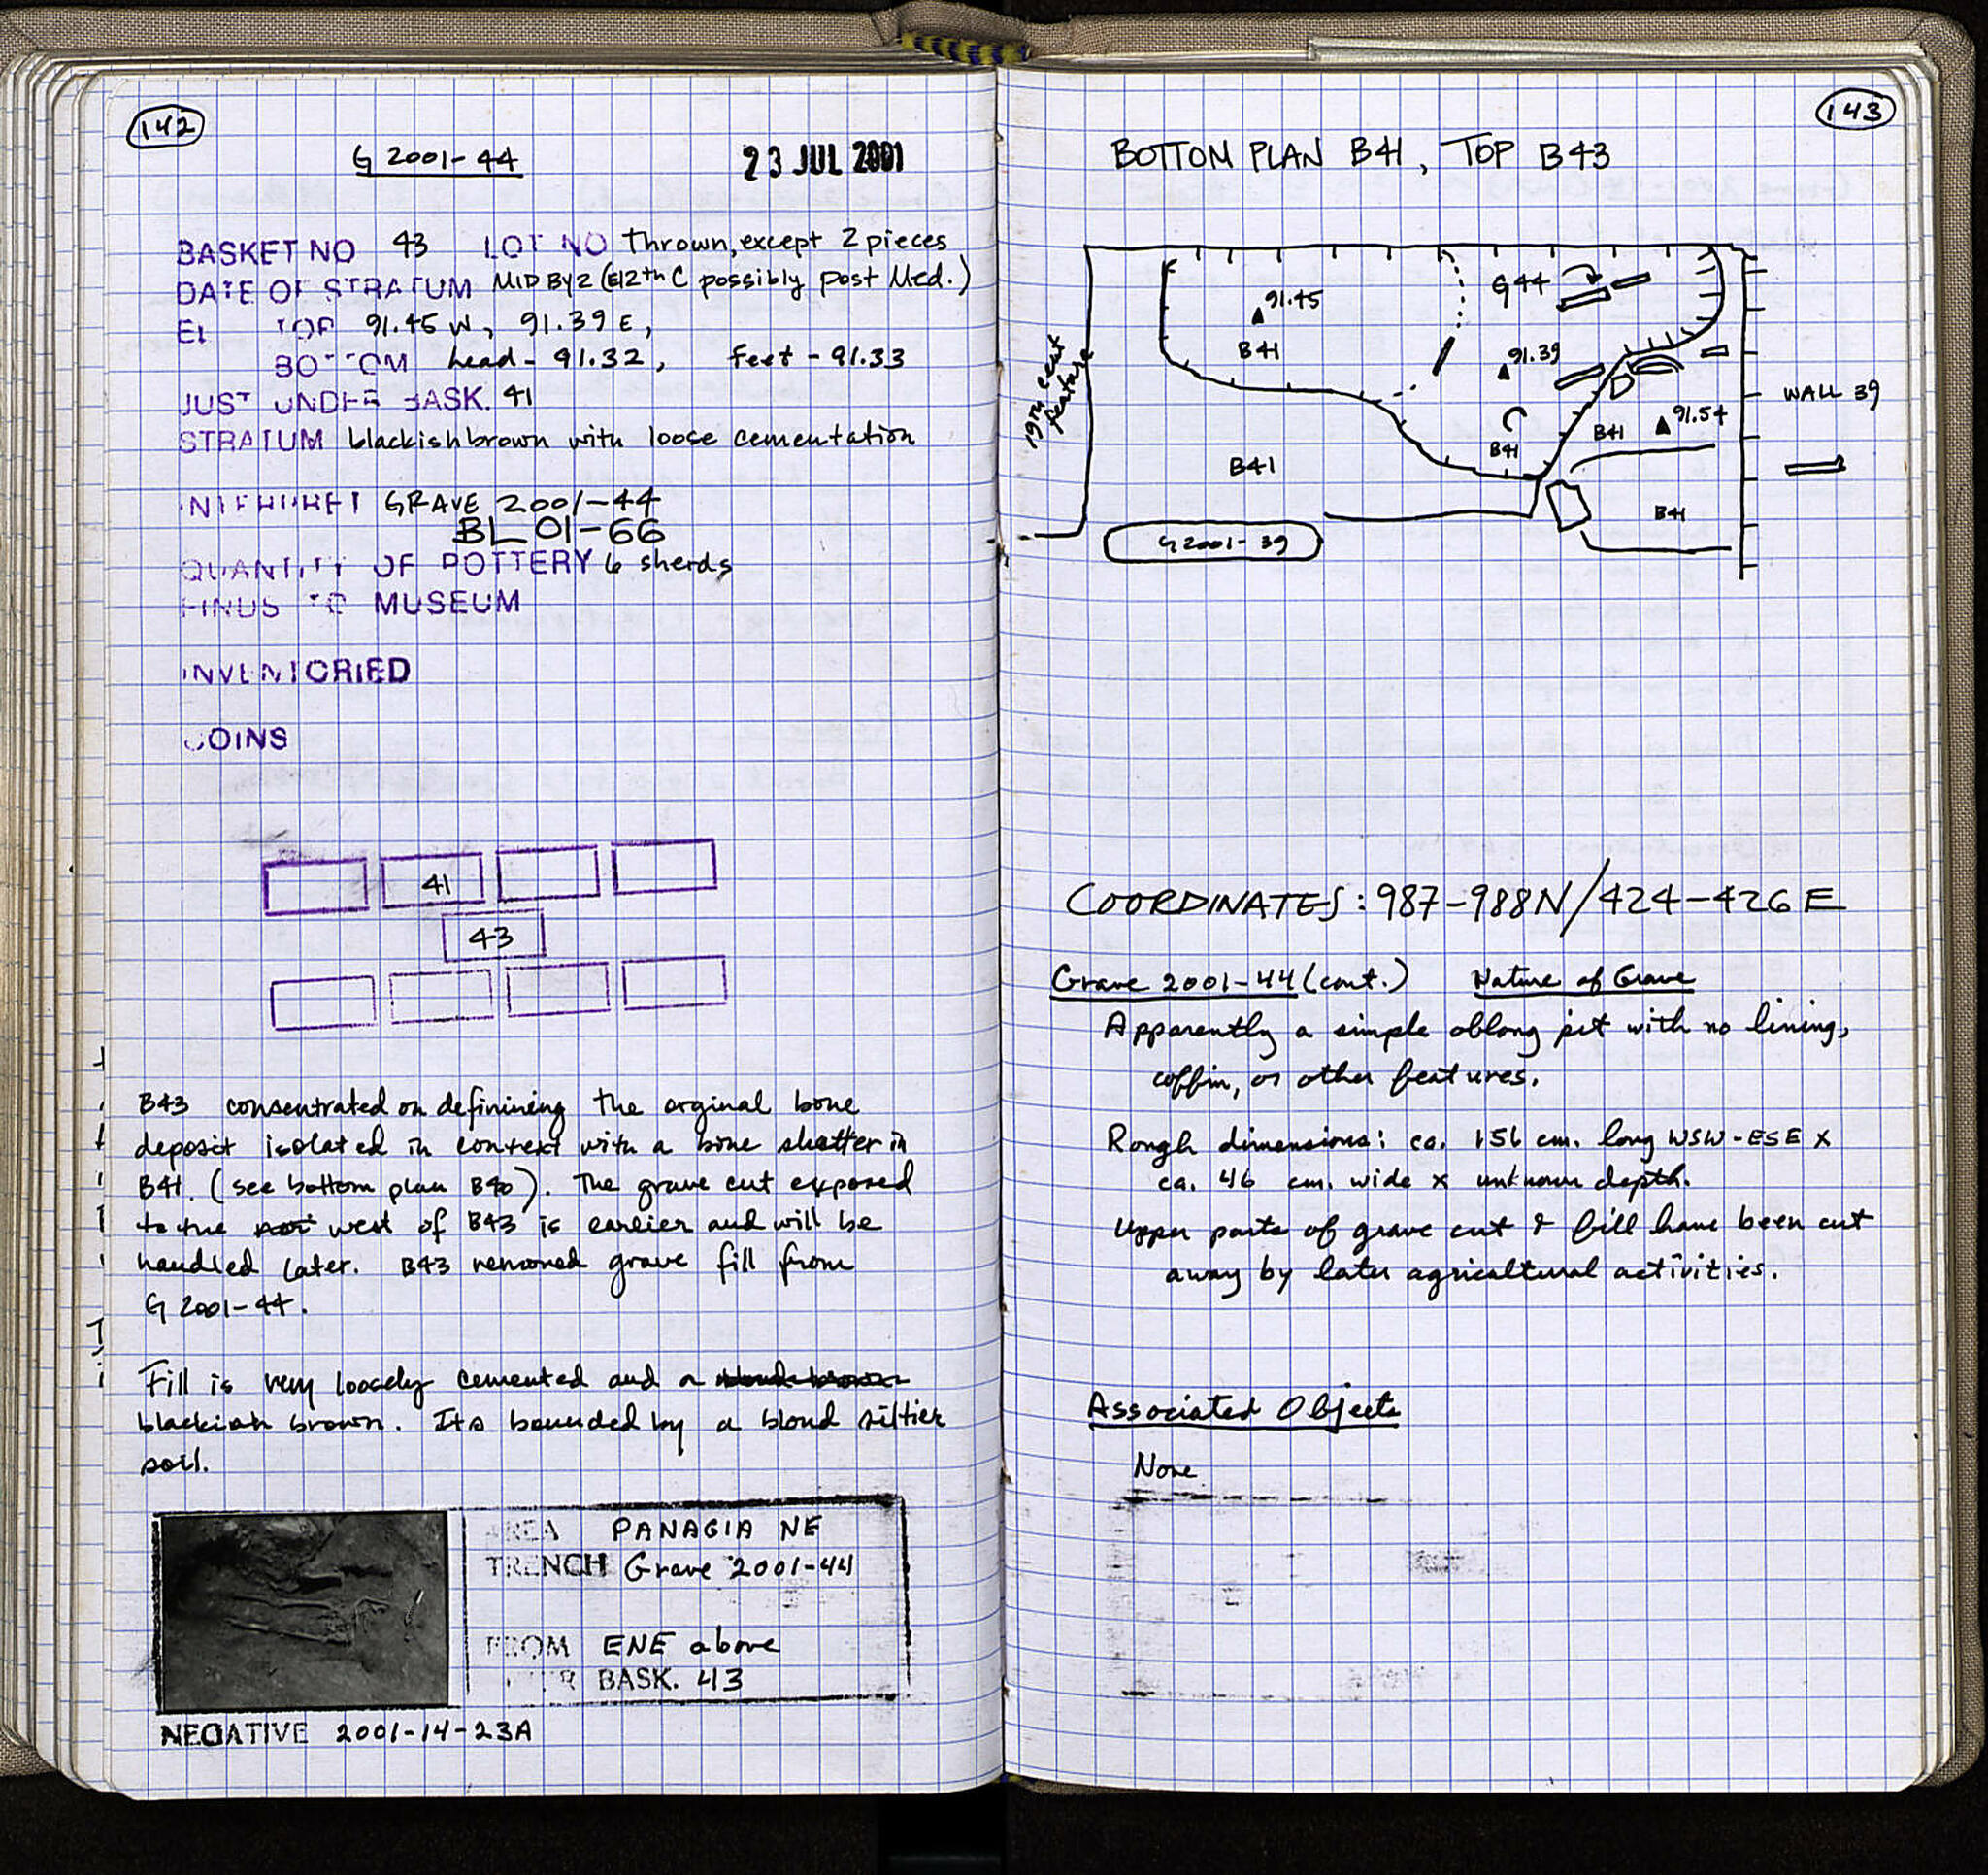 142
G 2001-44
23 JUL 2001
BASKET NO 43 LOT NO Thrown, except 2 pieces
DATE OF STRATUM MID BYZ (E12th C possibly post Med.)
EL TOP 91.45 W, 91.39 E,
BOTTOM head - 91.32, feet - 91.33
JUST UNDER BASK. 41
STRATUM blackish brown with loose cementation
INTERPRET GRAVE 2001-44
BL 01-66
QUANTITY OF POTTERY 6 sherds
FINDS TO MUSEUM
INVENTORIED
COINS
41
43
B43 consentrated on definining the orginal bone
deposit isolated in context with a bone skatter in
B41. (see bottom plan B40). The grave cut exposed
to the west of B43 is earlier and will be
handled later. B43 removed grave fill from
G 2001-44.
Fill is very loosely cemented and a
blackish brown. Its bounded by a blond siltier
soil.
AREA PANAGIA NE
TRENCH Grave 2001-44
FROM ENE above
BASK. 43
NEGATIVE 2001-14-23A
143
BOTTOM PLAN B41, TOP B43
91.45
B41
G44
91.39
B41
B41
91.54
WALL 39
19th cent feature
B41
B41
G2001-39
COORDINATES: 987-988N/424-426E
Grave 2001-44 (cont.) Nature of Grave
Apparently a simple oblong pit with no lining,
coffin, or other features.
Rough dimensions: ca. 156 cm. long WSW-ESE x
ca. 46 cm. wide x unknown depth.
Upper parts of grave cut & fill have been cut
away by later agricultural activities.
Associated Objects
None